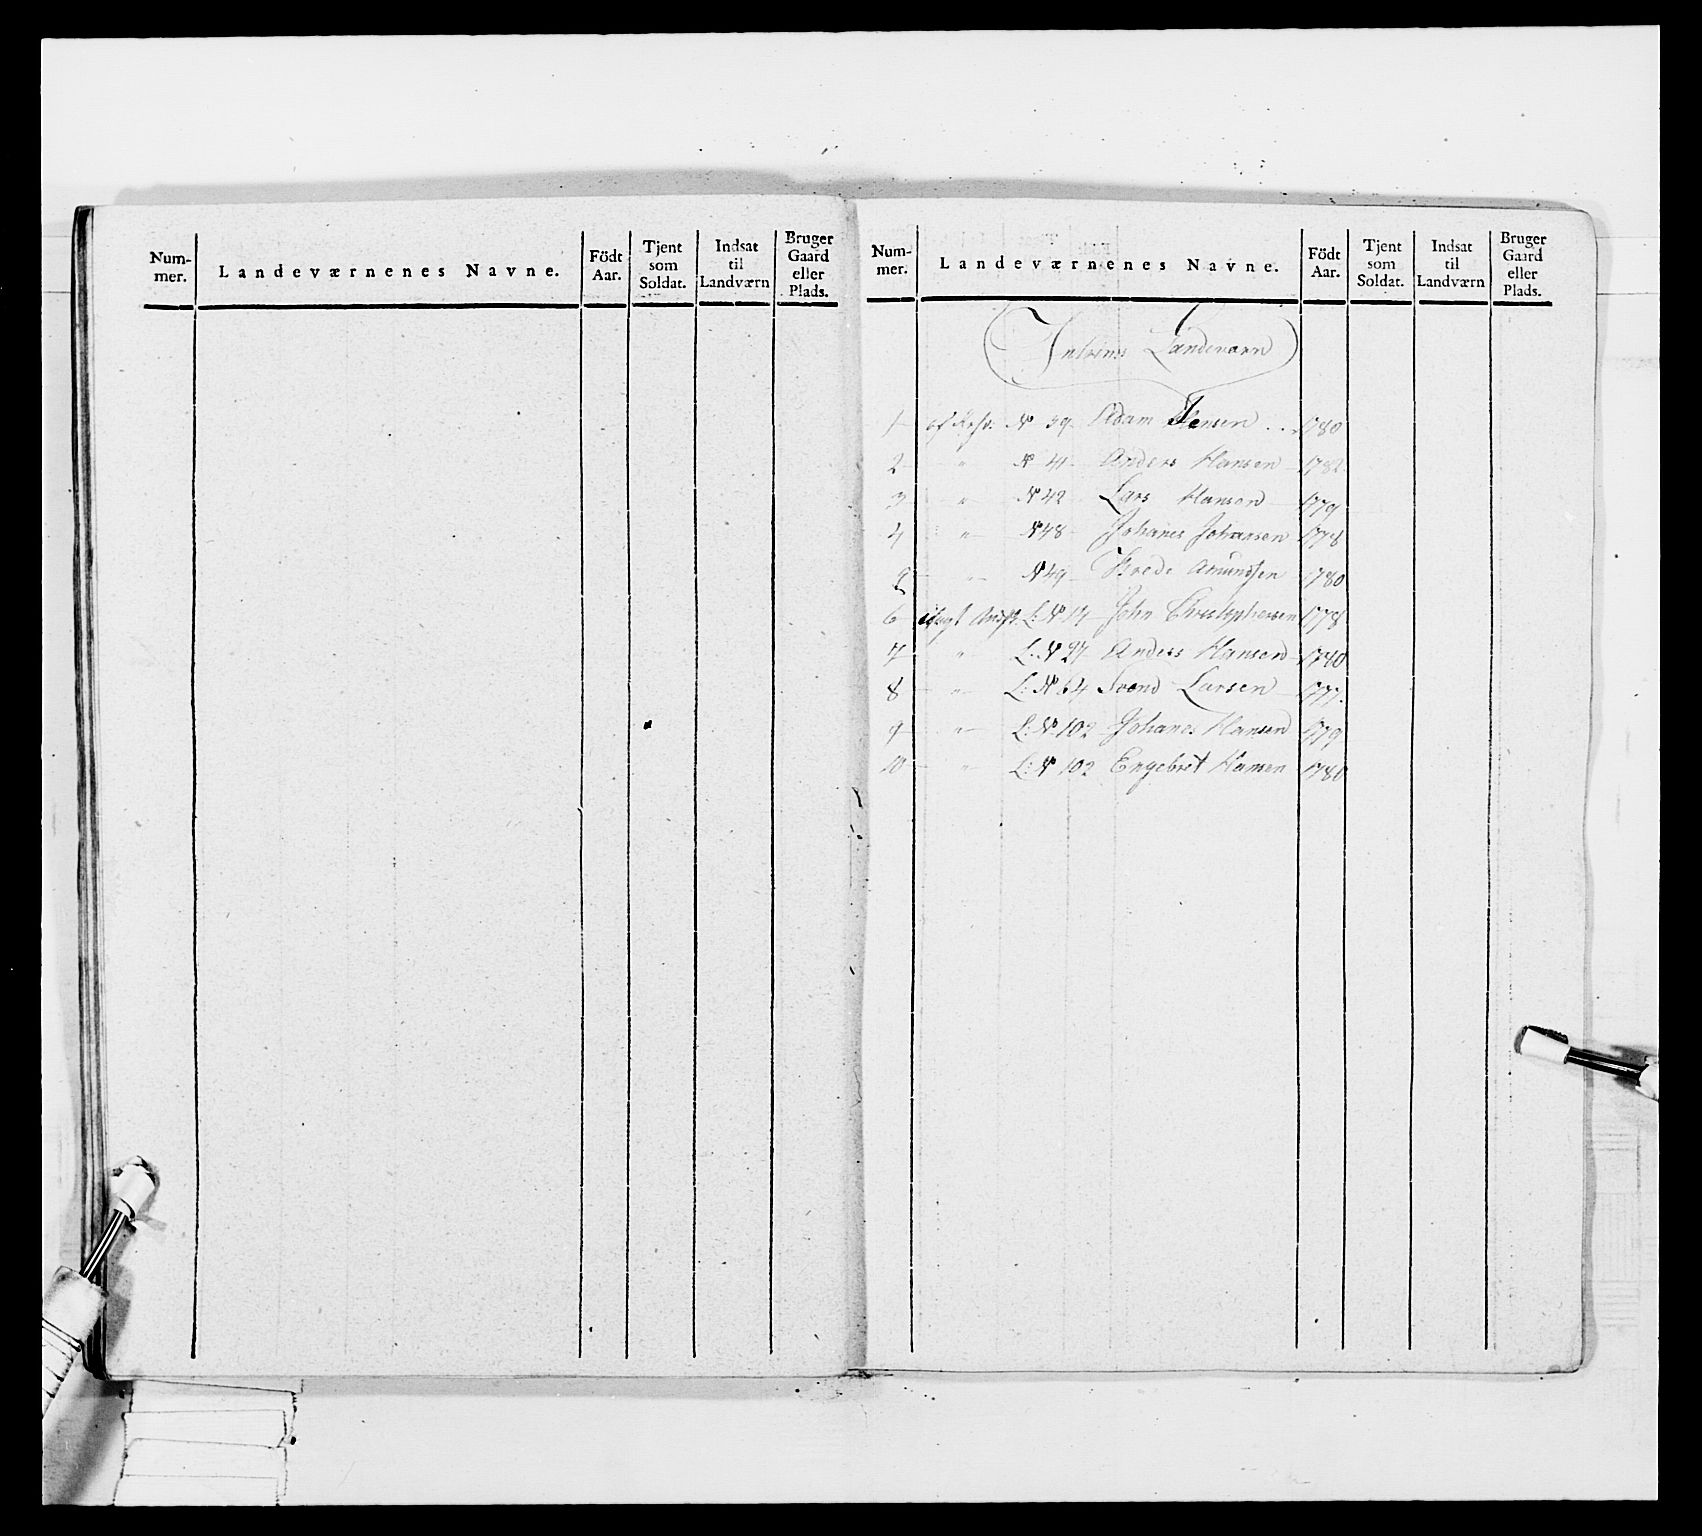 Num- mer. Landeværnenes Navne. Födt Aar. Tjent som Soldat. Indsat til Landværn Bruger Gaard eller Plads.
Num- mer. Landeværnenes Navne. Födt Aar. Tjent som Soldat. Indsat til Landværn Bruger Gaard eller Plads.
Landeværn
1 af No 39 Adam Hansen 1780
2 " No 41 Anders Hansen 1782
3 " No 42 Lars Hansen 1779
4 " No 48 Johanes Johansen 1778
" No 49 Amundsen 1780
6 L: No 14 John Christophersen 1778
7 " L: No 27 Anders Hansen 1780
8 " L: No 64 Svend Larsen 1777.
9 " L: No 102 Johanes Hansen 1779
10 " L: No 102 Engebret Hansen 1780